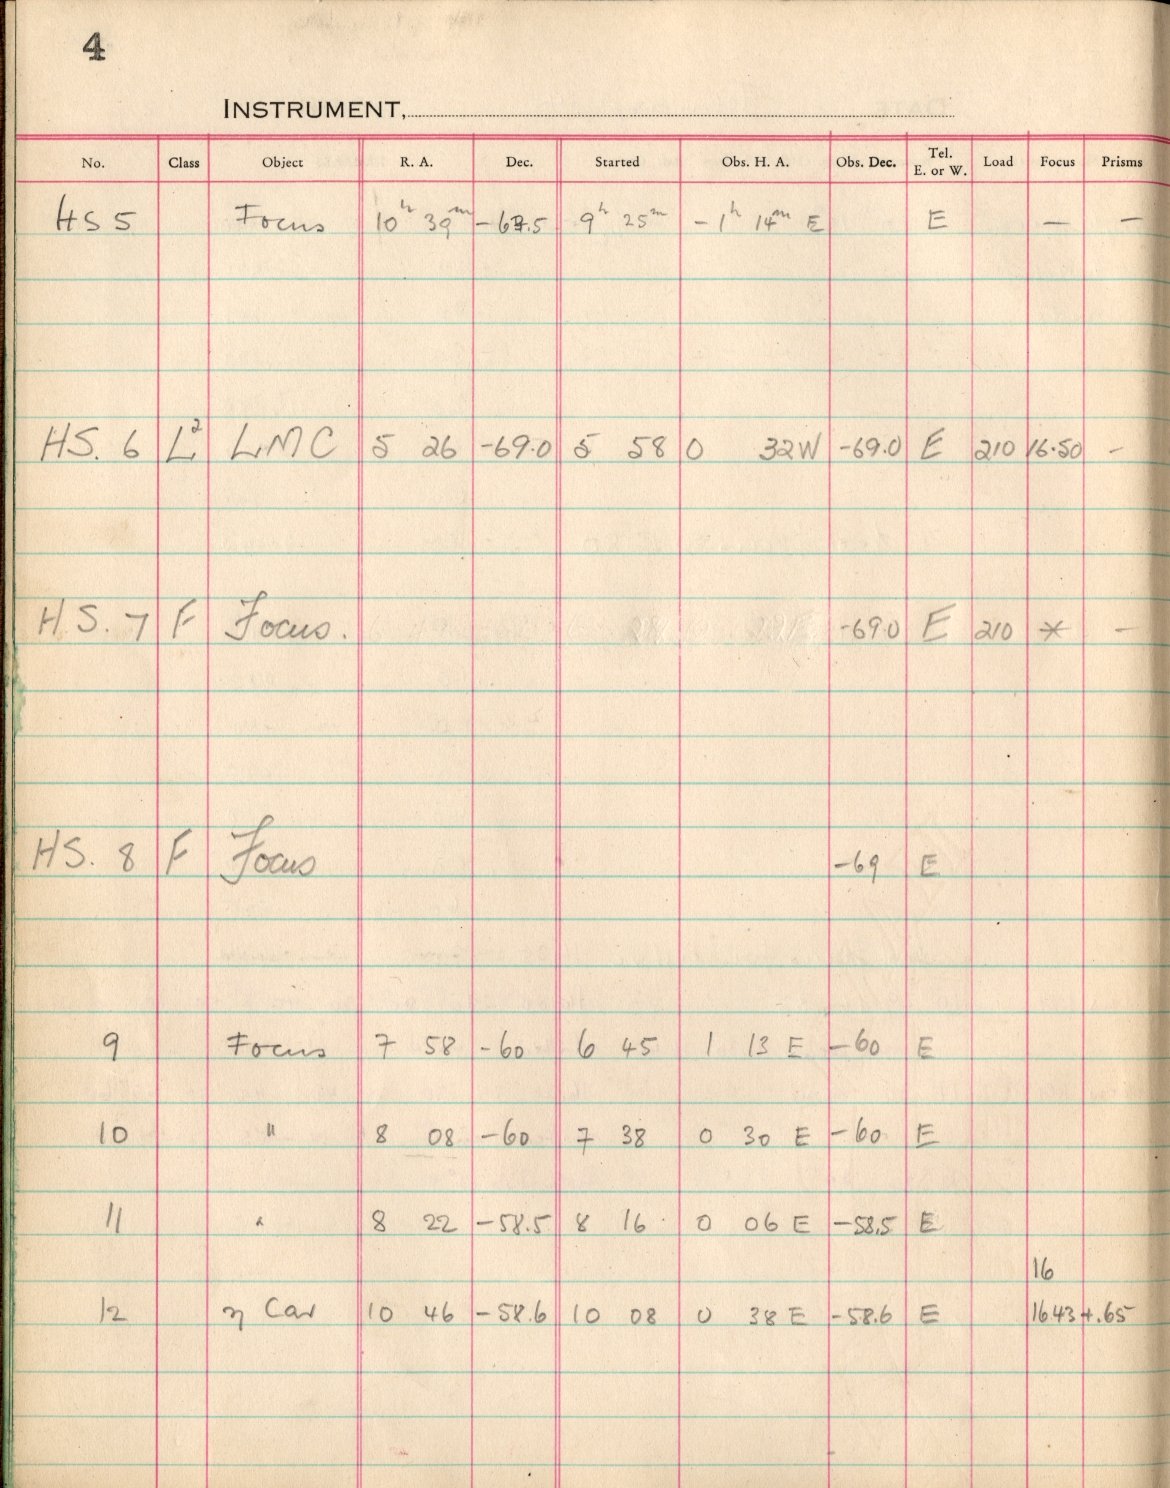 4
INSTRUMENT,
No. Class Object R. A. Dec. Started Obs. H. A. Obs. Dec. Tel. E. or W. Load Focus Prisms
HS 5 Focus 10h 39m 9h 25m -1h 14m E E — —
HS. 6 L² LMC 5 26 -69.0 5 58 0 32W -69.0 E 210 16.50 -
HS. 7 F Focus. -69.0 E 210 * -
HS. 8 F Focus -69 E
9 Focus 7 58 -60 6 45 1 13 E -60 E
10 " 8 08 -60 7 38 0 30 E -60 E
11 " 8 22 -58.5 8 16 0 06 E -58.5 E
16
12 η Car 10 46 -58.6 10 08 0 38 E -58.6 E 1643+.65